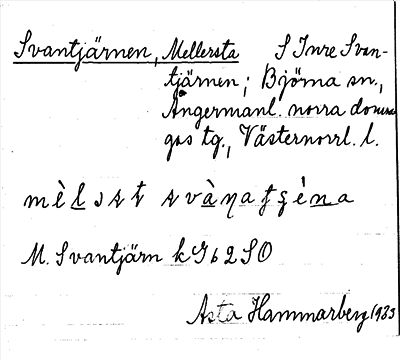 Svantjärnen, Mellersta S Inre Svan-
tjärnen; Björna sn.,
Ångermanl. norra domsa
gas tg., Västernorrl. l.
M. Svantjärn k 962 SO
Asta Hammarberg 1933